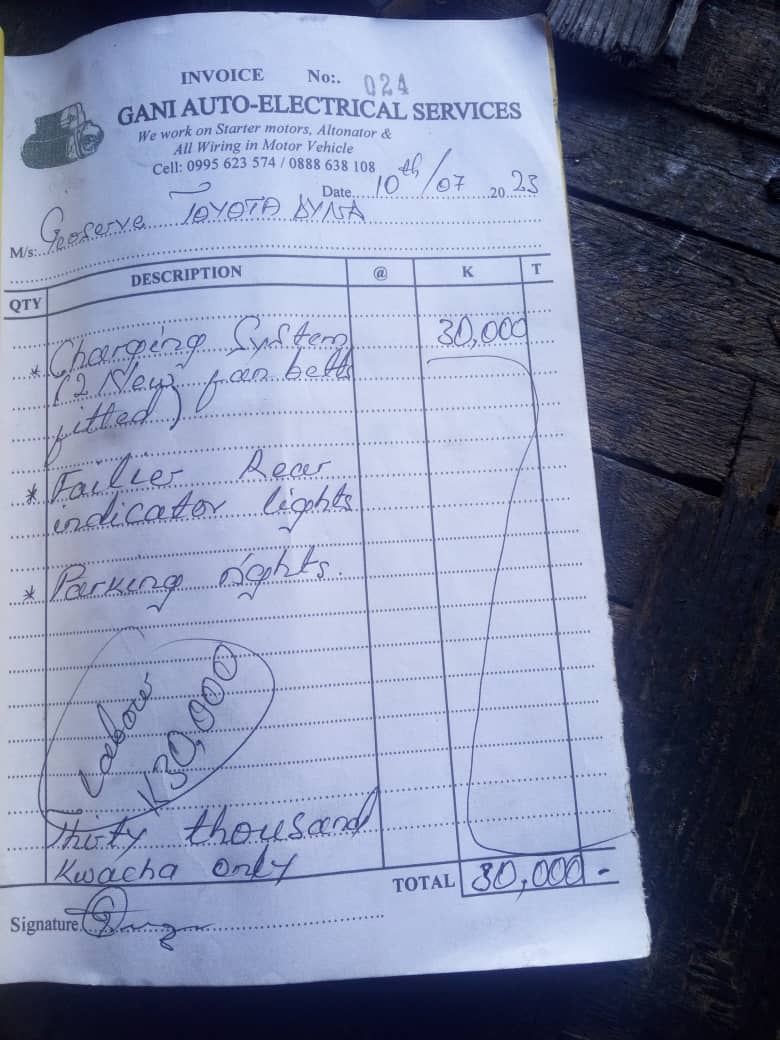 INVOICE No:. 024
GANI AUTO-ELECTRICAL SERVICES
We work on Starter motors, Altonator &
All Wiring in Motor Vehicle
Cell: 0995 623 574 / 0888 638 108
Date 10th/07 2023
M/s: Geoserve TOYOTA DYNA
QTY DESCRIPTION @ K T
* Charging System 30,000
(2 New fan belts
fitted)
* Failier Rear
indicator lights
* Parking rights.
Labour
K30,000
Thirty thousand
Kwacha only
TOTAL 30,000 -
Signature